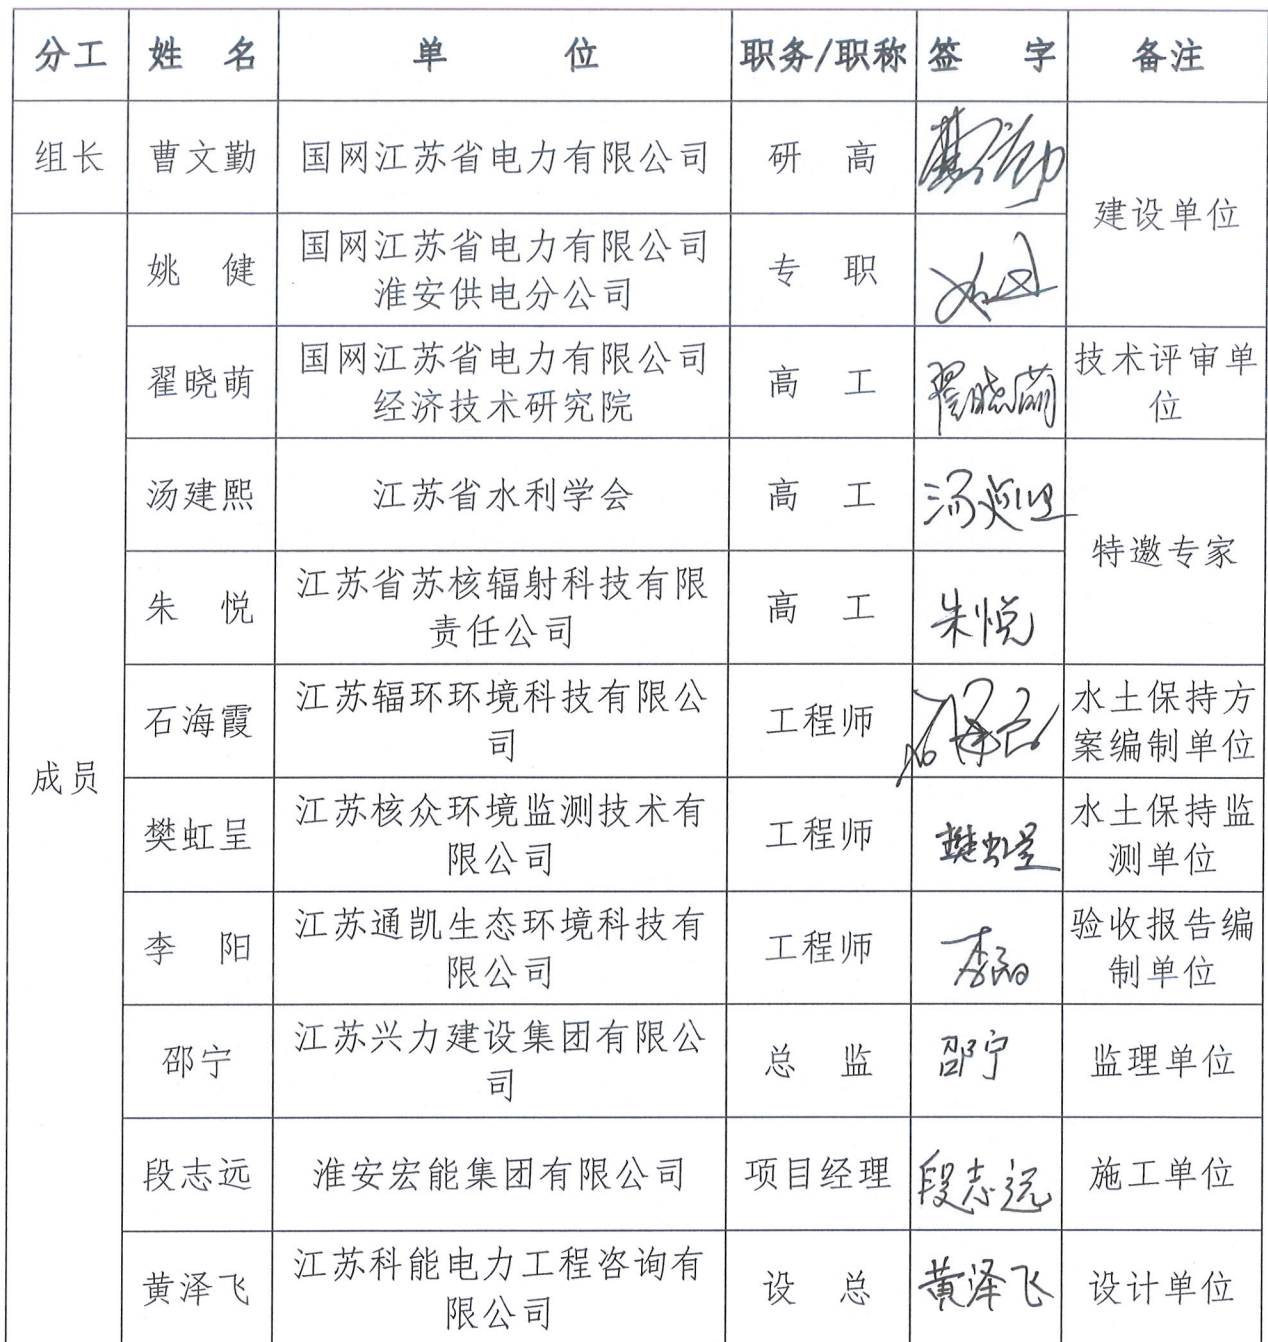 分工 姓 名 单 位 职务/职称 签 字 备注
组长 曹文勤 国网江苏省电力有限公司 研 高
建设单位
姚 健 国网江苏省电力有限公司
淮安供电分公司 专 职
翟晓萌 国网江苏省电力有限公司
经济技术研究院 高 工 翟晓萌 技术评审单
位
汤建熙 江苏省水利学会 高 工
特邀专家
朱 悦 江苏省苏核辐射科技有限
责任公司 高 工 朱悦
石海霞 江苏辐环环境科技有限公
司 工程师 水土保持方
案编制单位
成员
樊虹呈 江苏核众环境监测技术有
限公司 工程师 樊虹呈 水土保持监
测单位
李 阳 江苏通凯生态环境科技有
限公司 工程师 李阳 验收报告编
制单位
邵宁 江苏兴力建设集团有限公
司 总 监 邵宁 监理单位
段志远 淮安宏能集团有限公司 项目经理 段志远 施工单位
黄泽飞 江苏科能电力工程咨询有
限公司 设 总 黄泽飞 设计单位